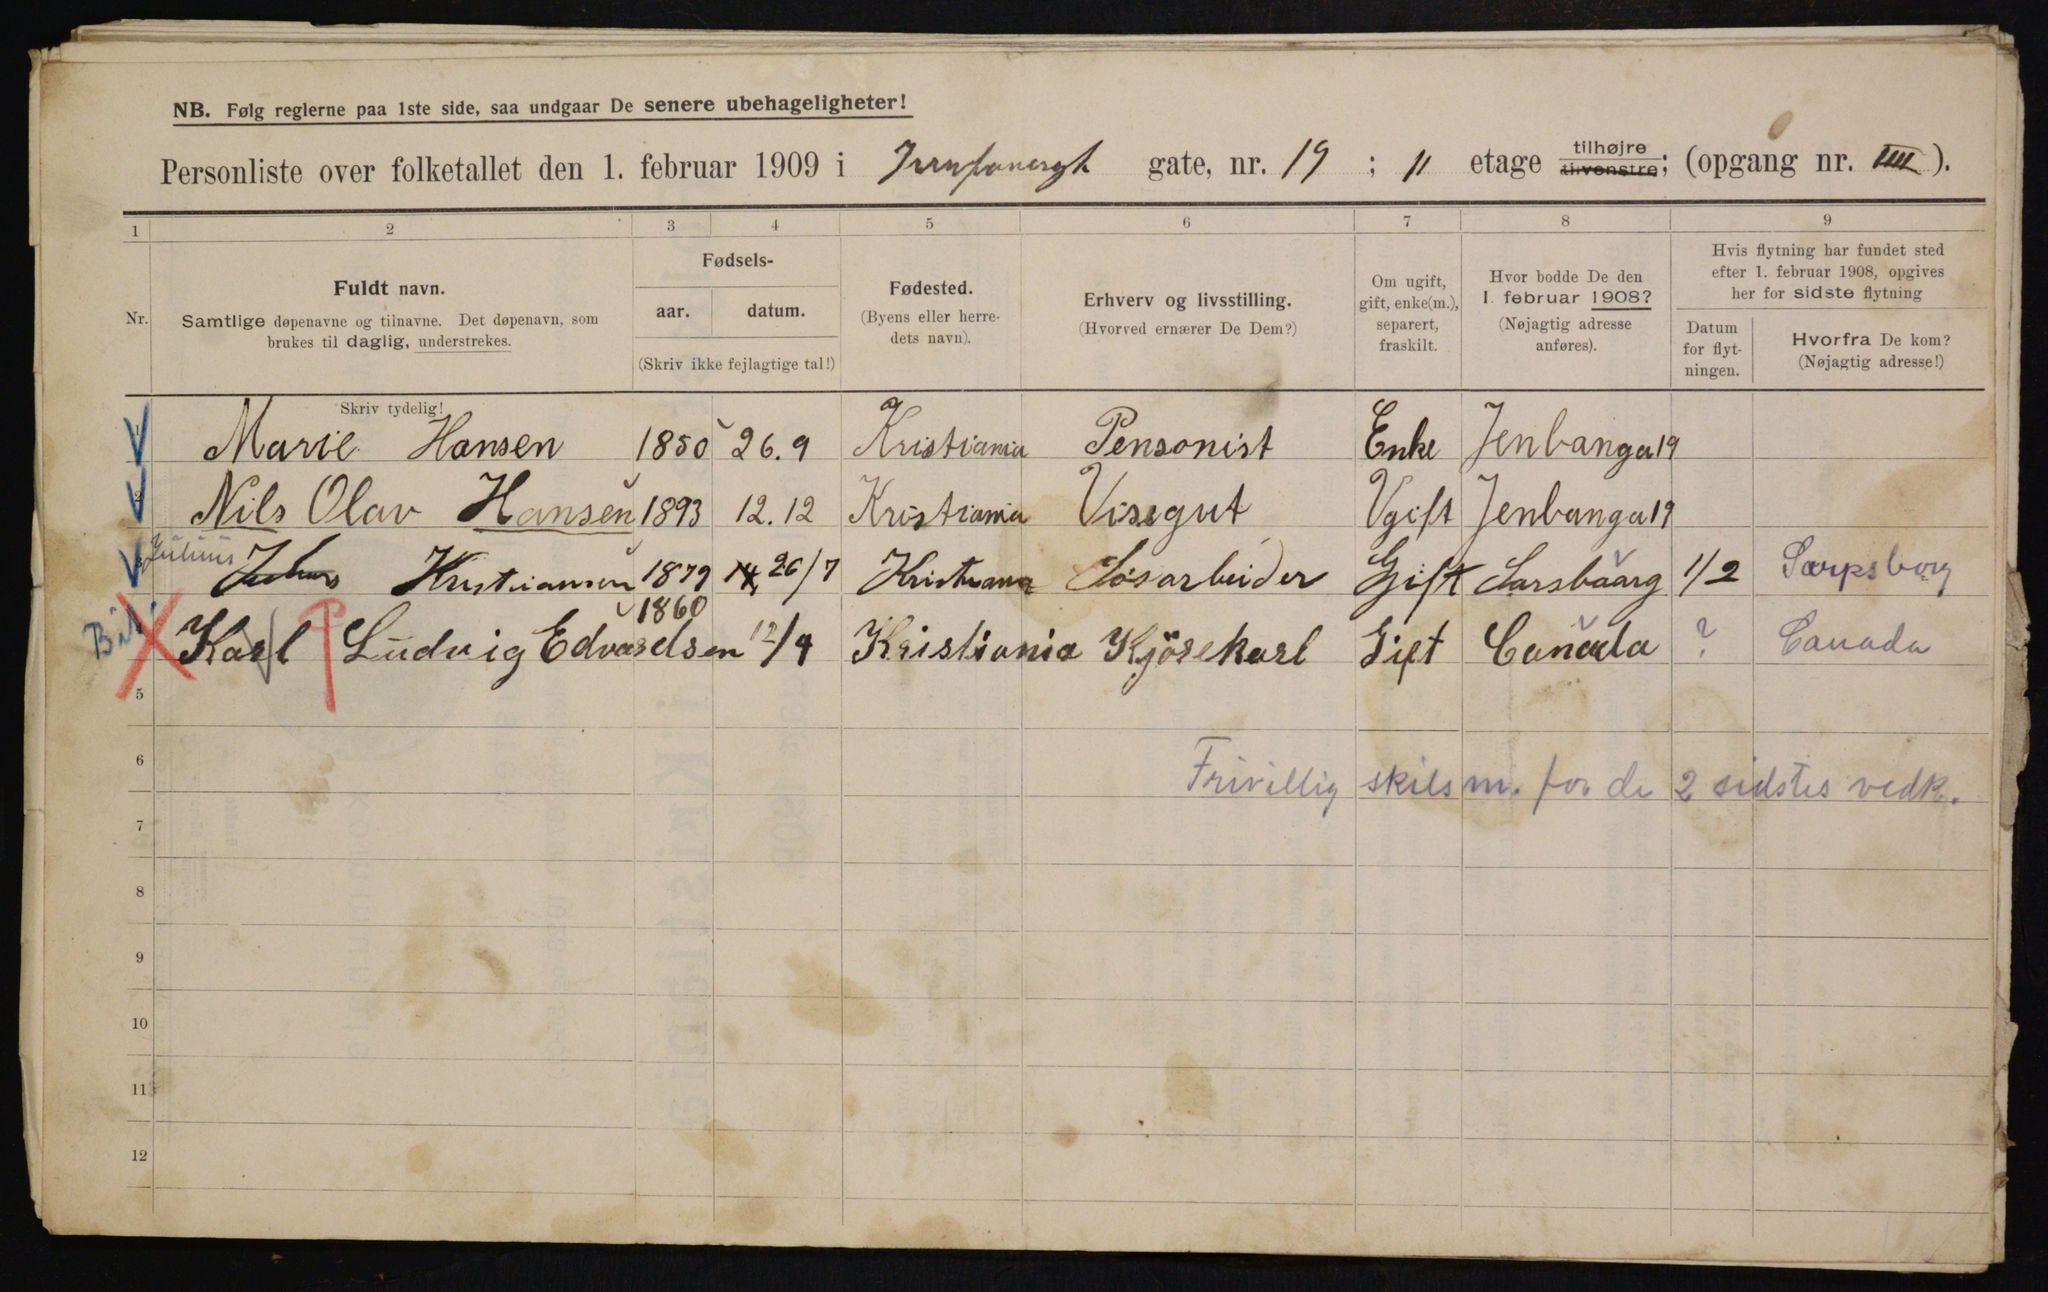 NB. Følg reglerne paa 1ste side, saa undgaar De senere ubehageligheter!
Personliste over folketallet den 1. februar 1909 i gate, nr. 19 ; 11 etage tilhøjre tilvenstre; (opgang nr. III ).
1 2 3 4 5 6 7 8 9
Nr.
Fuldt navn.
Samtlige døpenavne og tilnavne. Det døpenavn, som
brukes til daglig, understrekes.
Skriv tydelig!
Fødsels-
aar. datum.
(Skriv ikke fejlagtige tal!)
Fødested.
(Byens eller herre-
dets navn).
Erhverv og livsstilling.
(Hvorved ernærer De Dem?)
Om ugift,
gift, enke(m.),
separert,
fraskilt.
Hvor bodde De den
1. februar 1908?
(Nøjagtig adresse
anføres).
Hvis flytning har fundet sted
efter 1. februar 1908, opgives
her for sidste flytning
Datum
for flyt-
ningen.
Hvorfra De kom?
(Nøjagtig adresse!)
1 Marie Hansen 1850 26.9 Kristiania Pensonist Enke Jenbanga 19
2 Nils Olav Hansen 1893 12.12 Kristiania Visegut Ugift Jenbanga 19
3 Julius Julius Kristiansen 1879 26/7 Kristiania Løsarbeider Gift Sarsbaarg 1/2 Sarpsborg
Karl Ludvig Edvardsen 1860 12/4 Kristiania Kjörekarl Gift Canada ? Canada
5
6
Frivillig skilsm. for de 2 sidstes vedk.
7
8
9
10
11
12